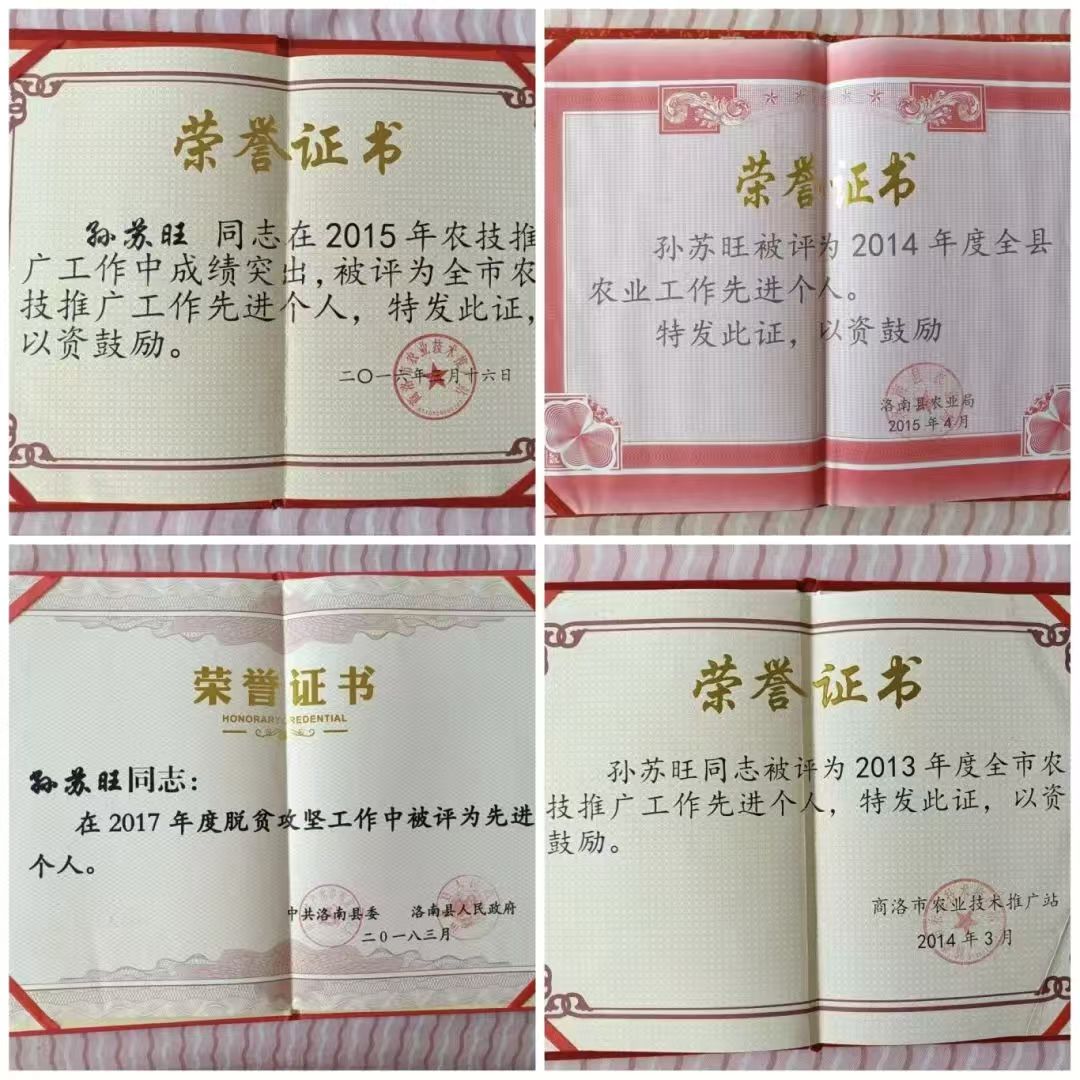 荣誉证书
孙苏旺 同志在2015年农技推
广工作中成绩突出,被评为全市农
技推广工作先进个人，特发此证，
以资鼓励。
二〇一六年三月十六日
荣誉证书
孙苏旺被评为2014年度全县
农业工作先进个人。
特发此证，以资鼓励
洛南县农业局
2015年4月
荣誉证书
HONORARY CREDENTIAL
孙苏旺同志：
在2017年度脱贫攻坚工作中被评为先进
个人。
中共洛南县委 洛南县人民政府
二0一八三月
荣誉证书
孙苏旺同志被评为2013年度全市农
技推广工作先进个人，特发此证，以资
鼓励。
商洛市农业技术推广站
2014年3月